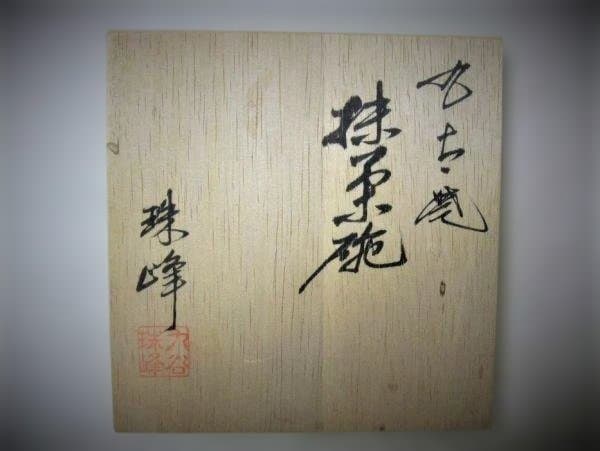 九谷焼
抹茶碗
珠峰
九谷
珠峰